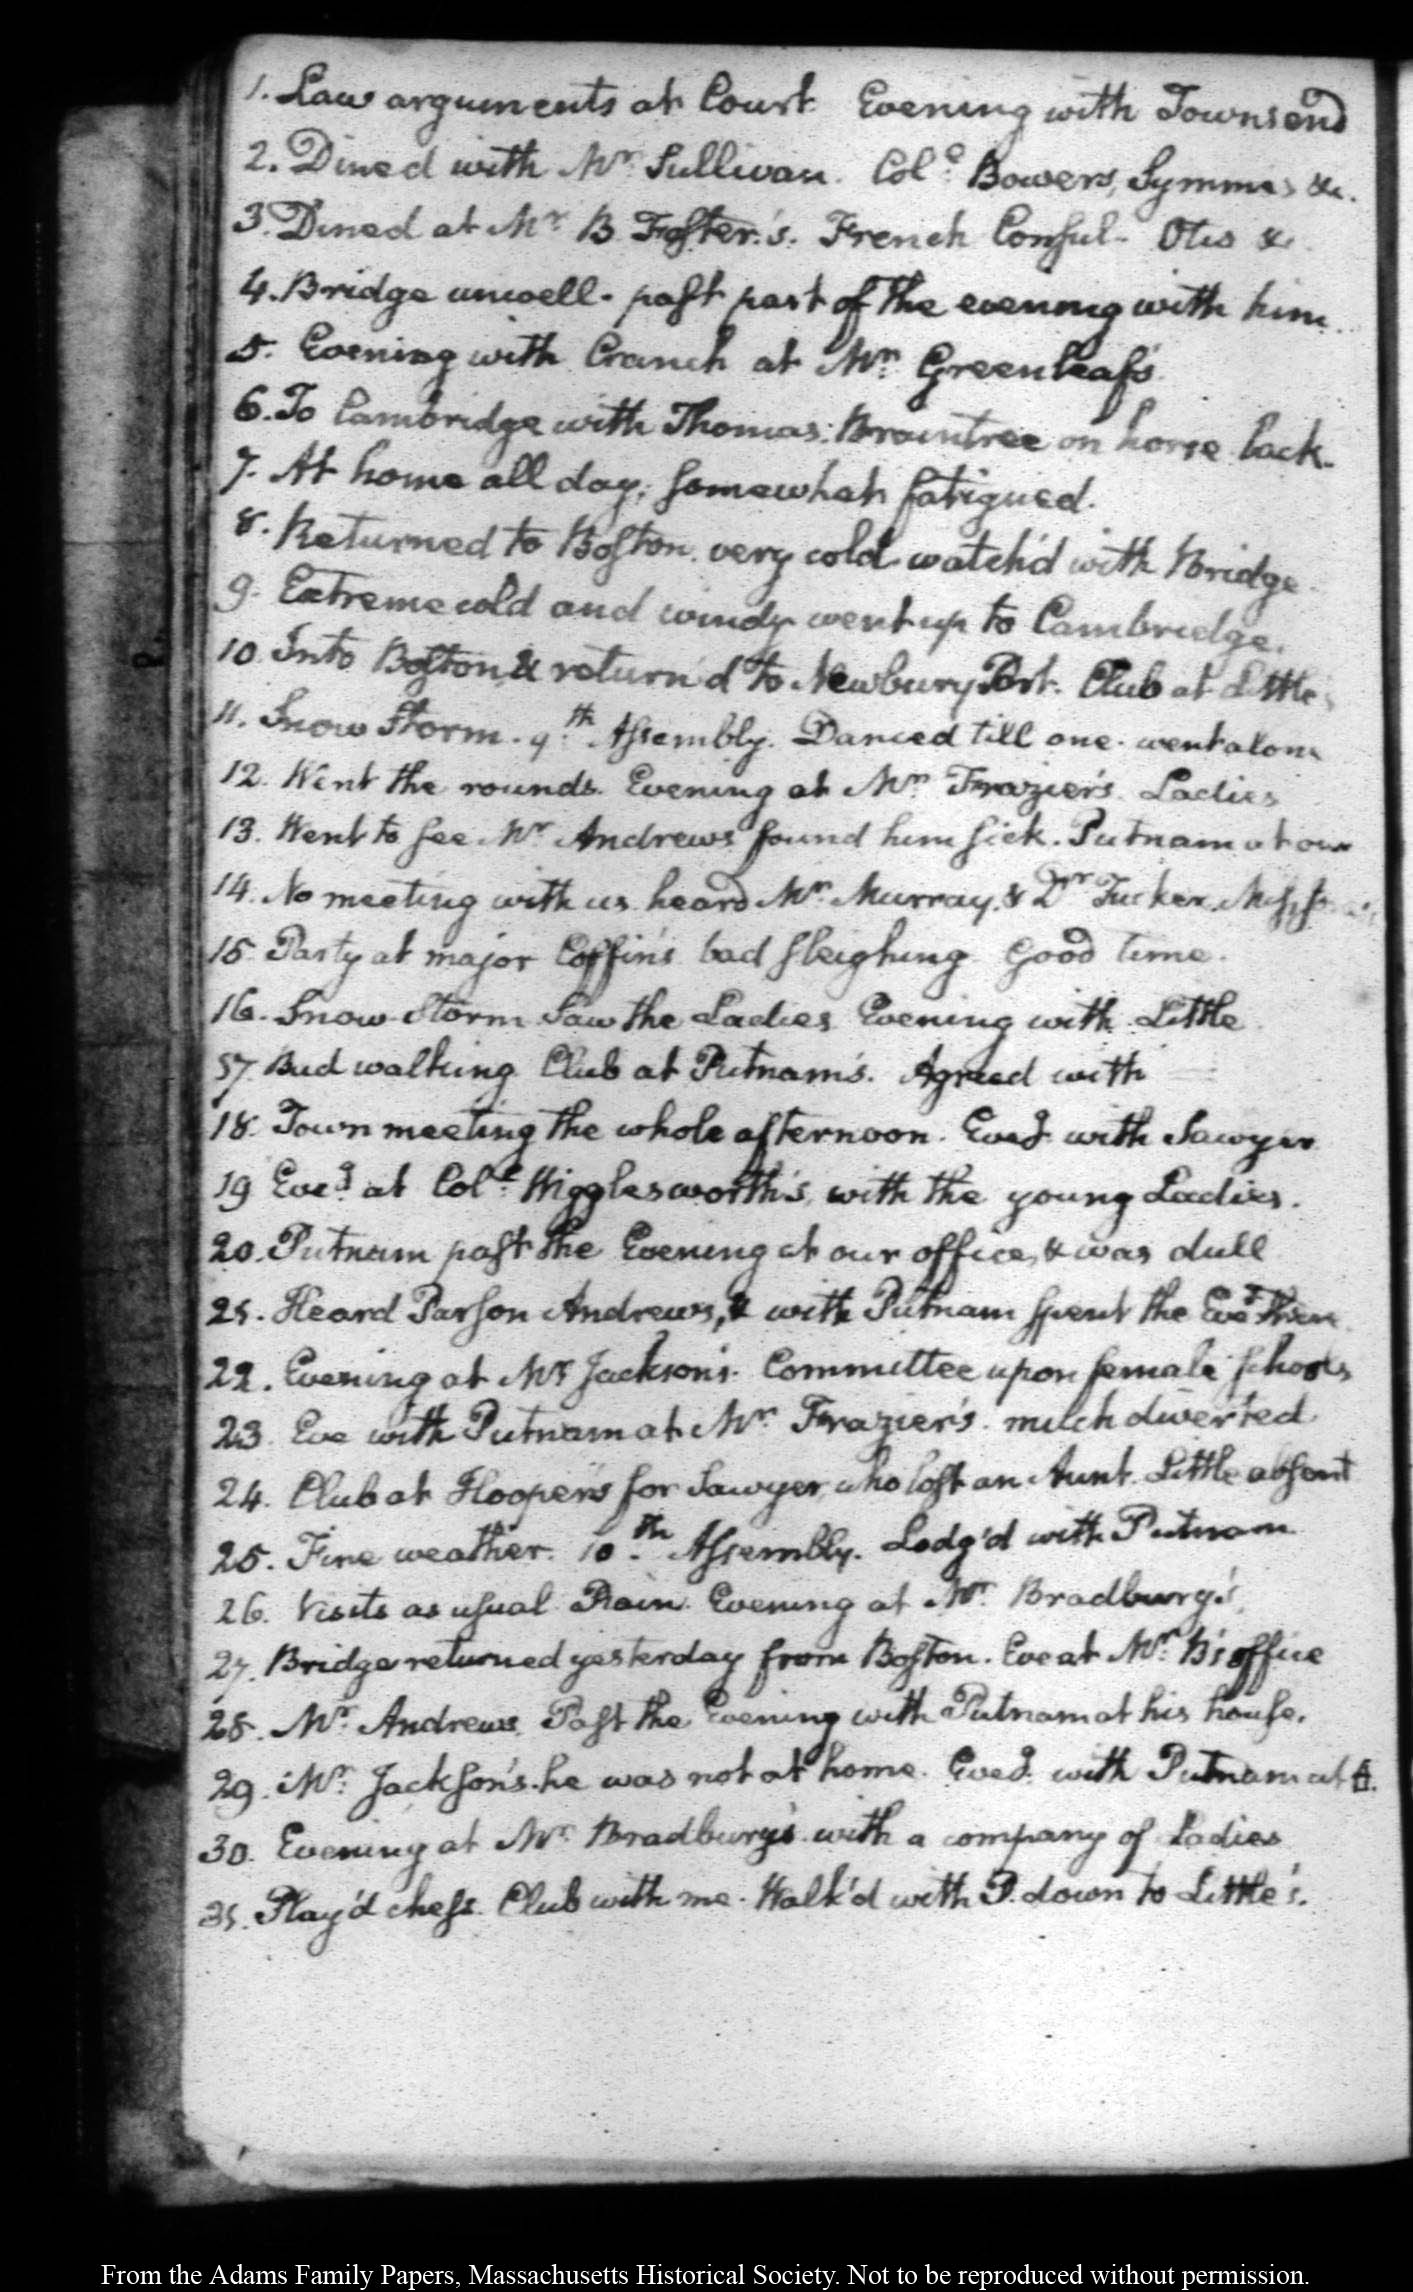 1. Law arguments at Court. Evening with Townsend
2. Dined with Mr. Sullivan. Colo. Bowers, Symmes &c.
3. Dined at Mr. B Foster's. French Consul- Otis &c
4. Bridge unwell- past part of the evening with him.
5. Evening with Cranch at Mr. Greenleaf's
6. To Cambridge with Thomas: Braintree on horse back.
7. At home all day; somewhat fatigued.
8. Returned to Boston. very cold watch'd with Bridge.
9. Extreme cold and windy went up to Cambridge.
10. Into Boston & return'd to Newbury Port. Club at Little's
11. Snow Storm. 9th. Assembly. Danced till one. went alone
12. Went the rounds. Evening at Mr. Frazier's. Ladies
13. Went to see Mr. Andrews found him sick. Putnam at our
14. No meeting with us. heard Mr. Murray, & Dr. Tucker.
15. Party at major Coffin's bad sleighing. Good time.
16. Snow storm Saw the Ladies Evening with Little
17. Bad walking Club at Putnam's. Agreed with
18. Town meeting the whole afternoon. Eveg. with Sawyer
19 Eveg. at Colo. Wigglesworth's, with the young Ladies.
20. Putnam past the Evening at our office, & was dull
21. Heard Parson Andrews, & with Putnam spent the Eveg. there
22. Evening at Mr Jackson's. Committee upon female schools
23. Eve with Putnam at Mr. Frazier's. much diverted
24. Club at Hooper's for Sawyer, who lost an Aunt. Little absent
25. Fine weather. 10.th Assembly. Lodg'd with Putnam
26. Visits as usual Rain. Evening at Mr. Bradbury's
27. Bridge returned yesterday from Boston. Eve at Mr. B's office
28. Mr. Andrews. Past the Evening with Putnam at his house.
29. Mr. Jackson's. he was not at home. Eveg. with Putnam at
30. Evening at Mr. Bradbury's with a company of Ladies
31. Play'd chess. Club with me. Walk'd with P. down to Little's.
From the Adams Family Papers, Massachusetts Historical Society. Not to be reproduced without permission.